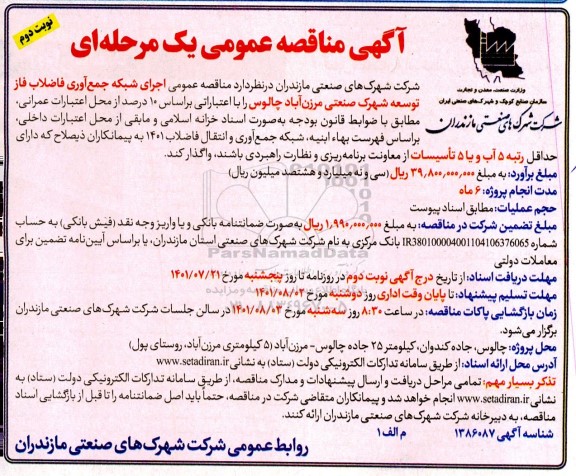 نوبت دوم
آگهی مناقصه عمومی یک مرحله‌ای
وزارت صنعت، معدن و تجارت
سازمان صنایع کوچک و شهرک‌های صنعتی ایران
شرکت شهرک‌های صنعتی مازندران
شرکت شهرک‌های صنعتی مازندران درنظردارد مناقصه عمومی اجرای شبکه جمع‌آوری فاضلاب فاز
توسعه شهرک صنعتی مرزن‌آباد چالوس را با اعتباراتی براساس ۱۰ درصد از محل اعتبارات عمرانی،
مطابق با ضوابط قانون بودجه به‌صورت اسناد خزانه اسلامی و مابقی از محل اعتبارات داخلی،
براساس فهرست بهاء ابنیه، شبکه جمع‌آوری و انتقال فاضلاب ۱۴۰۱ به پیمانکاران ذیصلاح که دارای
حداقل رتبه ۵ آب و یا ۵ تأسیسات از معاونت برنامه‌ریزی و نظارت راهبردی باشند، واگذار کند.
مبلغ برآورد: به مبلغ ۳۹,۸۰۰,۰۰۰,۰۰۰ ریال (سی و نه میلیارد و هشتصد میلیون ریال)
مدت انجام پروژه: ۶ ماه
حجم عملیات: مطابق اسناد پیوست
مبلغ تضمین شرکت در مناقصه: به مبلغ ۱,۹۹۰,۰۰۰,۰۰۰ ریال به‌صورت ضمانتنامه بانکی و یا واریز وجه نقد (فیش بانکی) به حساب
شماره IR380100004001104106376065 بانک مرکزی به نام شرکت شهرک‌های صنعتی استان مازندران، یا براساس آیین‌نامه تضمین برای
معاملات دولتی
مهلت دریافت اسناد: از تاریخ درج آگهی نوبت دوم در روزنامه تا روز پنجشنبه مورخ ۱۴۰۱/۰۷/۲۱
مهلت تسلیم پیشنهاد: تا پایان وقت اداری روز دوشنبه مورخ ۱۴۰۱/۰۸/۰۲
زمان بازگشایی پاکات مناقصه: در ساعت ۸:۳۰ روز سه‌شنبه مورخ ۱۴۰۱/۰۸/۰۳ در سالن جلسات شرکت شهرک‌های صنعتی مازندران
برگزار می‌شود.
محل پروژه: چالوس، جاده کندوان، کیلومتر ۲۵ جاده چالوس- مرزن‌آباد (۵ کیلومتری مرزن‌آباد، روستای پول)
آدرس محل ارائه اسناد: از طریق سامانه تدارکات الکترونیکی دولت (ستاد) به نشانی www.setadiran.ir
تذکر بسیار مهم: تمامی مراحل دریافت و ارسال پیشنهادات و مدارک مناقصه، از طریق سامانه تدارکات الکترونیکی دولت (ستاد) به
نشانی www.setadiran.ir انجام خواهد شد و پیمانکاران متقاضی شرکت در مناقصه، حتماً باید اصل ضمانتنامه را تا قبل از بازگشایی اسناد
مناقصه، به دبیرخانه شرکت شهرک‌های صنعتی مازندران ارائه کنند.
شناسه آگهی ۱۳۸۶۰۸۷ م الف ۱
روابط عمومی شرکت شهرک‌های صنعتی مازندران
ParsNamadData